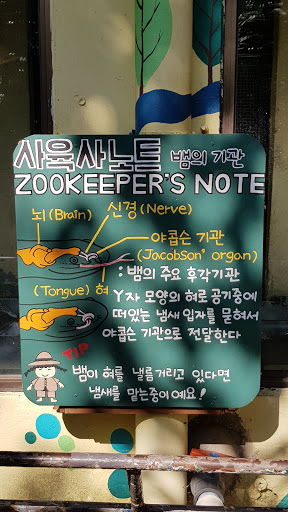 사육사노트 뱀의 기관
ZOOKEEPER'S NOTE
뇌 (Brain) 신경 (Nerve)
야콥슨 기관
(Jacobson' organ)
: 뱀의 주요 후각기관
(Tongue) 혀
Y자 모양의 혀로 공기중에
떠있는 냄새 입자를 묻혀서
야콥슨 기관으로 전달한다
TIP
뱀이 혀를 낼름거리고 있다면
냄새를 맡는중이예요!